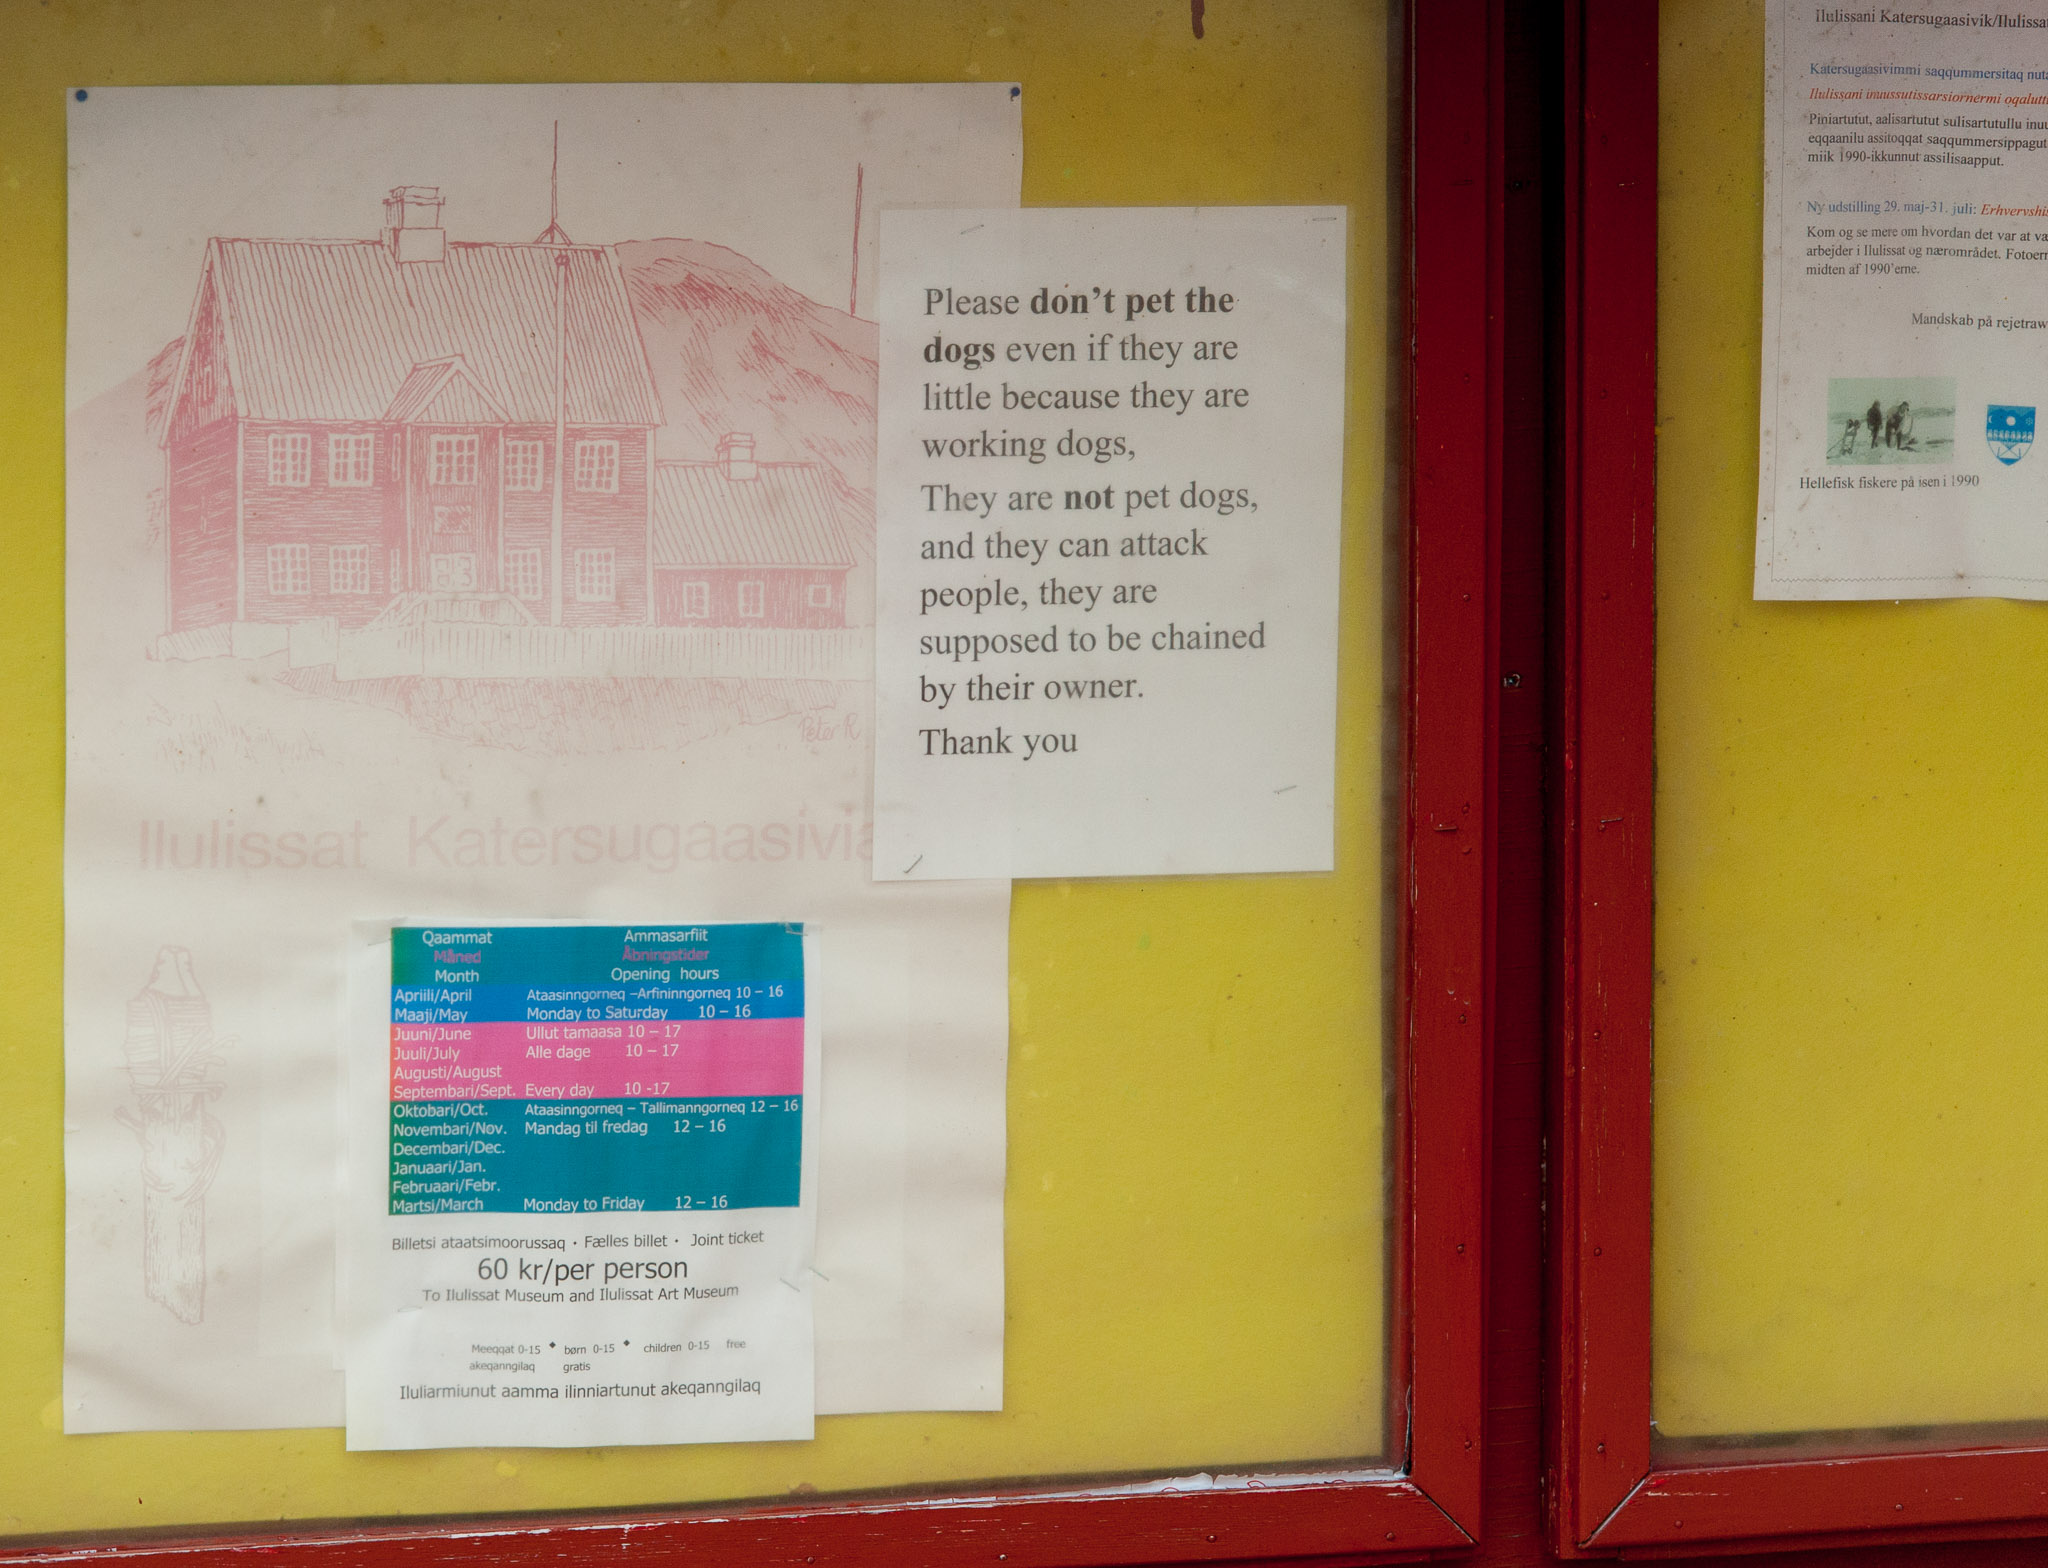 Peter R
Ilulissat Katersugaasivia
Please don't pet the
dogs even if they are
little because they are
working dogs,
They are not pet dogs,
and they can attack
people, they are
supposed to be chained
by their owner.
Thank you
Qaammat Ammasarfiit
Måned Åbningstider
Month Opening hours
Apriili/April Ataasinngorneq –Arfininngorneq 10 – 16
Maaji/May Monday to Saturday 10 – 16
Juuni/June Ullut tamaasa 10 – 17
Juuli/July Alle dage 10 – 17
Augusti/August
Septembari/Sept. Every day 10 -17
Oktobari/Oct. Ataasinngorneq – Tallimanngorneq 12 – 16
Novembari/Nov. Mandag til fredag 12 – 16
Decembari/Dec.
Januaari/Jan.
Februaari/Febr.
Martsi/March Monday to Friday 12 – 16
Billetsi ataatsimoorussaq • Fælles billet • Joint ticket
60 kr/per person
To Ilulissat Museum and Ilulissat Art Museum
Meeqqat 0-15 ◆ børn 0-15 ◆ children 0-15 free
akeqanngilaq gratis
Iluliarmiunut aamma ilinniartunut akeqanngilaq
Ilulissani Katersugaasivik/Ilulissa
Katersugaasivimmi saqqummersitaq nuta
Ilulissani inuussutissarsiornermi oqalutt
Piniartutut, aalisartutut sulisartutullu inuu
eqqaanilu assitoqqat saqqummersippagut
miik 1990-ikkunnut assilisaapput.
Ny udstilling 29. maj-31. juli: Erhvervshis
Kom og se mere om hvordan det var at va
arbejder i Ilulissat og nærområdet. Fotoern
midten af 1990'erne.
Mandskab på rejetraw
Hellefisk fiskere på isen i 1990